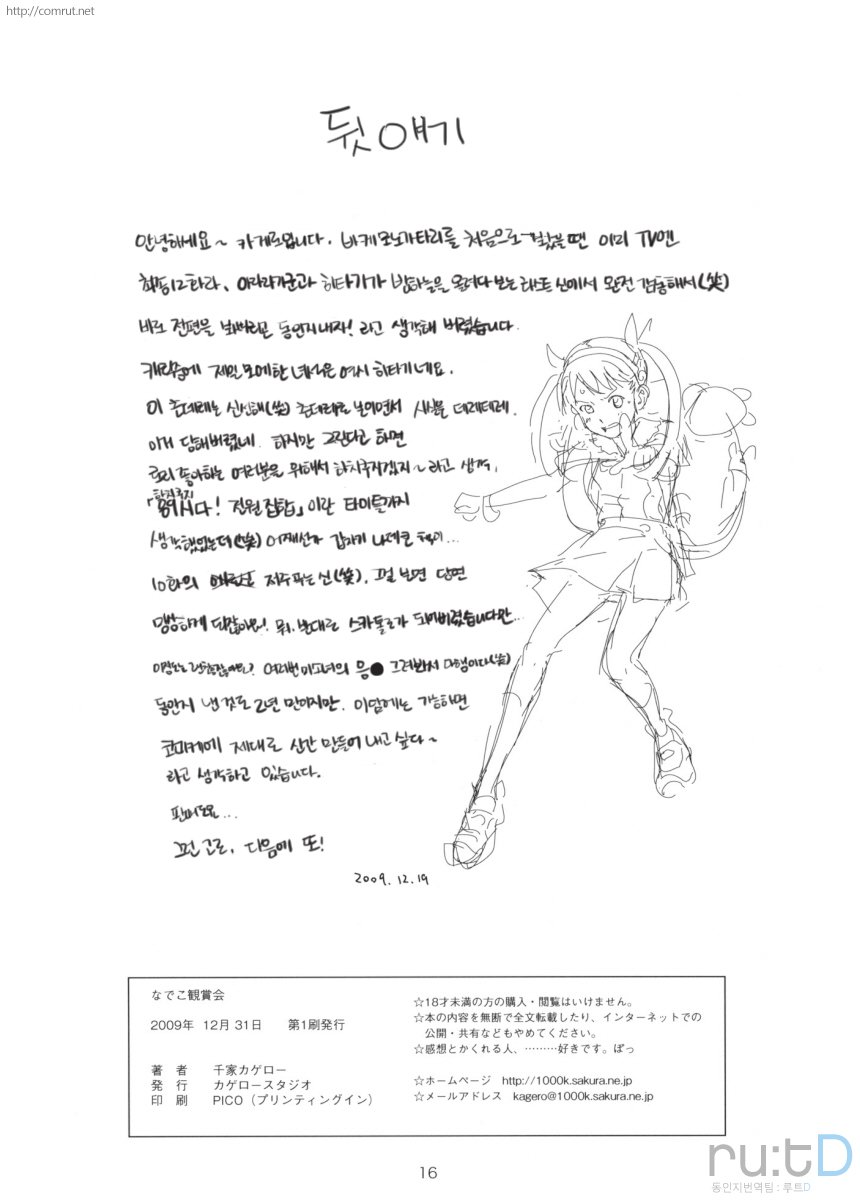 http://comrut.net
뒷얘기
안녕하세요~ 카게로입니다. 바케모노가타리를 처음으로 봤을땐 이미 TV엔
최종12화라, 아라라기군과 히타기가 밤하늘을 올려다 보는 라스트 신에서 완전 감동해서(笑)
바로 전편을 봐버리곤 동인지내자! 라고 생각해 버렸습니다.
캐릭중에 제일 모에한 녀석은 역시 히타기네요.
이 츤데레는 신선해(笑) 츤데레로 보이면서 사실은 데레데레.
이거 당해버렸네. 하지만 그린다고 하면
로리 좋아하는 여러분을 위해서 하치쿠지겠지~라고 생각,
하치쿠지
「89시다! 전원집합」이란 타이틀까지
생각했었는데(笑) 어째선가 갑자기 나데코 책이...
10화의 저주푸는신(笑). 그걸 보면 당연
망상하게 되잖아요! 뭐, 반대로 스카톨로가 되어버렸습니다만...
여러번 미소녀의 응● 그려봐서 다행이다(笑)
동인지 낸것도 2년 만이지만. 이 다음에는 가능하면
코미케에 제대로 신간 만들어 내고 싶다~
라고 생각하고 있습니다.
그런 고로, 다음에 또!
2009.12.19
なでこ観賞会
2009年 12月 31日 第1刷発行
著 者 千家カゲロー
発 行 カゲロースタジオ
印 刷 PICO（プリンティングイン）
☆18才未満の方の購入・閲覧はいけません。
☆本の内容を無断で全文転載したり、インターネットでの
公開・共有などもやめてください。
☆感想とかくれる人、………好きです。ぽっ
☆ホームページ http://1000k.sakura.ne.jp
☆メールアドレス kagero@1000k.sakura.ne.jp
16
ru:tD
동인지번역팀 : 루트D